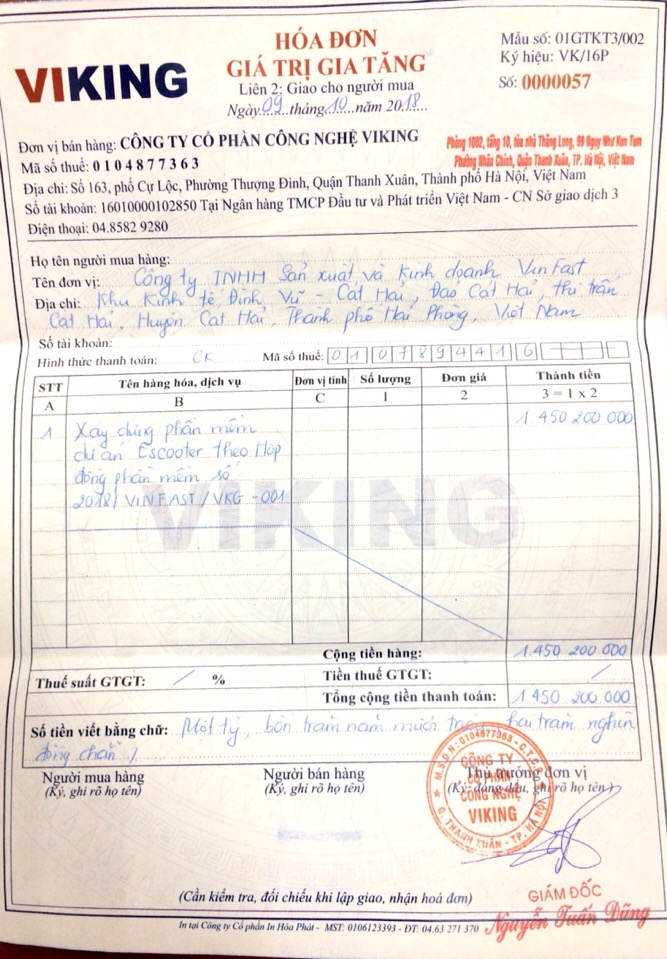 VIKING
HÓA ĐƠN
GIÁ TRỊ GIA TĂNG
Liên 2: Giao cho người mua
Ngày 09 tháng 10 năm 2018
Mẫu số: 01GTKT3/002
Ký hiệu: VK/16P
Số: 0000057
Đơn vị bán hàng: CÔNG TY CỔ PHẦN CÔNG NGHỆ VIKING
Phòng 1002, tầng 10, tòa nhà Thăng Long, 99 Ngụy Như Kon Tum
Phường Nhân Chính, Quận Thanh Xuân, TP. Hà Nội, Việt Nam
Mã số thuế: 0104877363
Địa chỉ: Số 163, phố Cự Lộc, Phường Thượng Đình, Quận Thanh Xuân, Thành phố Hà Nội, Việt Nam
Số tài khoản: 16010000102850 Tại Ngân hàng TMCP Đầu tư và Phát triển Việt Nam - CN Sở giao dịch 3
Điện thoại: 04.8582 9280
Họ tên người mua hàng:
Tên đơn vị: Công ty TNHH Sản xuất và Kinh doanh VinFast
Địa chỉ: Khu Kinh tế Đình Vũ - Cát Hải, Đảo Cát Hải, thị trấn
Cát Hải, Huyện Cát Hải, Thành phố Hải Phòng, Việt Nam
Số tài khoản:
Hình thức thanh toán: CK Mã số thuế: 0107894416
STT Tên hàng hóa, dịch vụ Đơn vị tính Số lượng Đơn giá Thành tiền
A B C 1 2 3 = 1 x 2
1 Xây dựng phần mềm 1 450 200 000
dự án Escooter theo Hợp
đồng phần mềm số
2018/VINFAST/VKG-001
VIKING
Cộng tiền hàng: 1.450 200 000
Thuế suất GTGT: / % Tiền thuế GTGT: /
Tổng cộng tiền thanh toán: 1 450 200.000
Số tiền viết bằng chữ: Một tỷ, bốn trăm năm mươi triệu, hai trăm nghìn
đồng chẵn /
Người mua hàng Người bán hàng Thủ trưởng đơn vị
(Ký, ghi rõ họ tên) (Ký, ghi rõ họ tên) (Ký, đóng dấu, ghi rõ họ tên)
M.S.D.N: 0104877363 - C.T.C.P
CÔNG TY
CỔ PHẦN
CÔNG NGHỆ
VIKING
Q. THANH XUÂN - TP. HÀ NỘI
(Cần kiểm tra, đối chiếu khi lập giao, nhận hoá đơn)
GIÁM ĐỐC
Nguyễn Tuấn Dũng
In tại Công ty Cổ phần In Hòa Phát - MST: 0106123393 - ĐT: 04.63 271 370